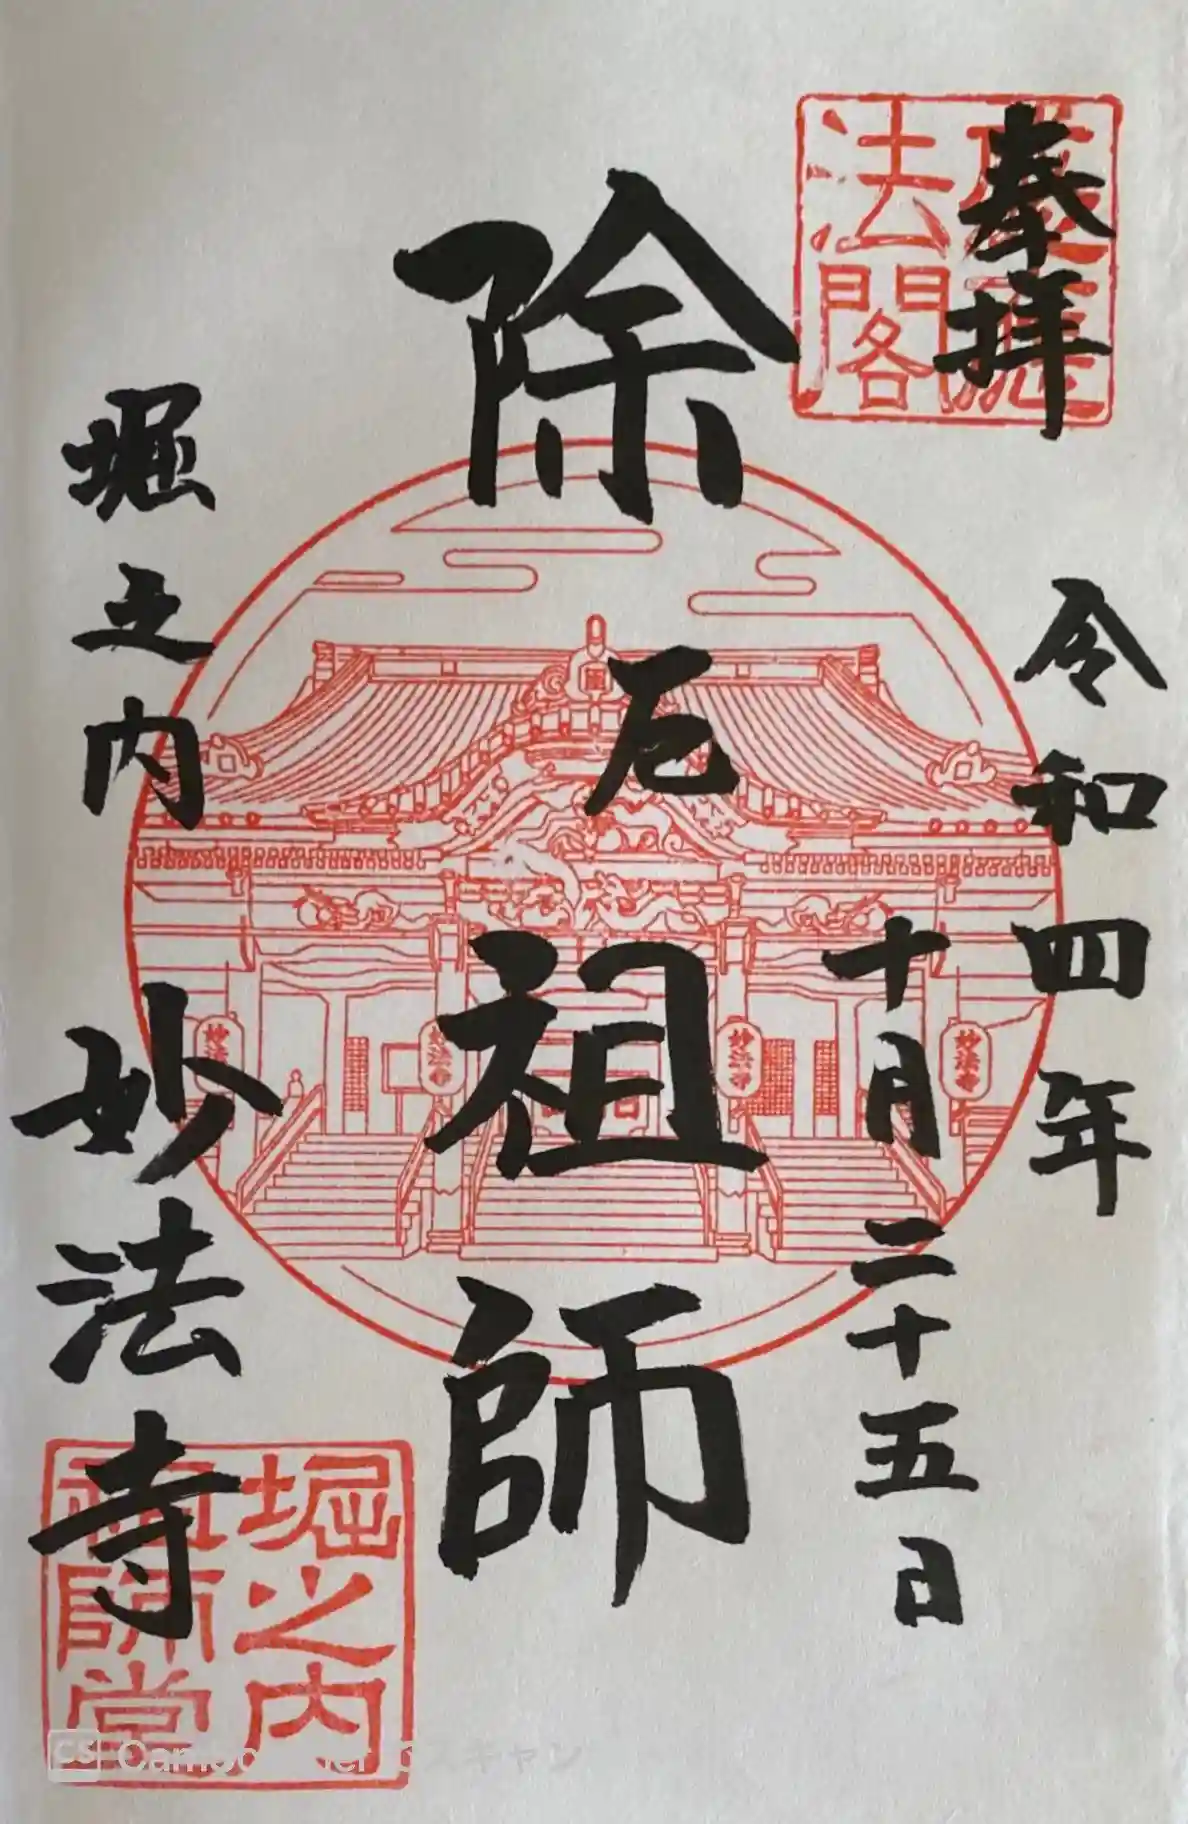 奉拝
令和四年
十月二十五日
除厄祖師
堀之内 妙法寺
感應
法閣
妙法寺
妙法寺
妙法寺
妙法寺
堀之内
祖師堂
CS CamScanner でスキャン